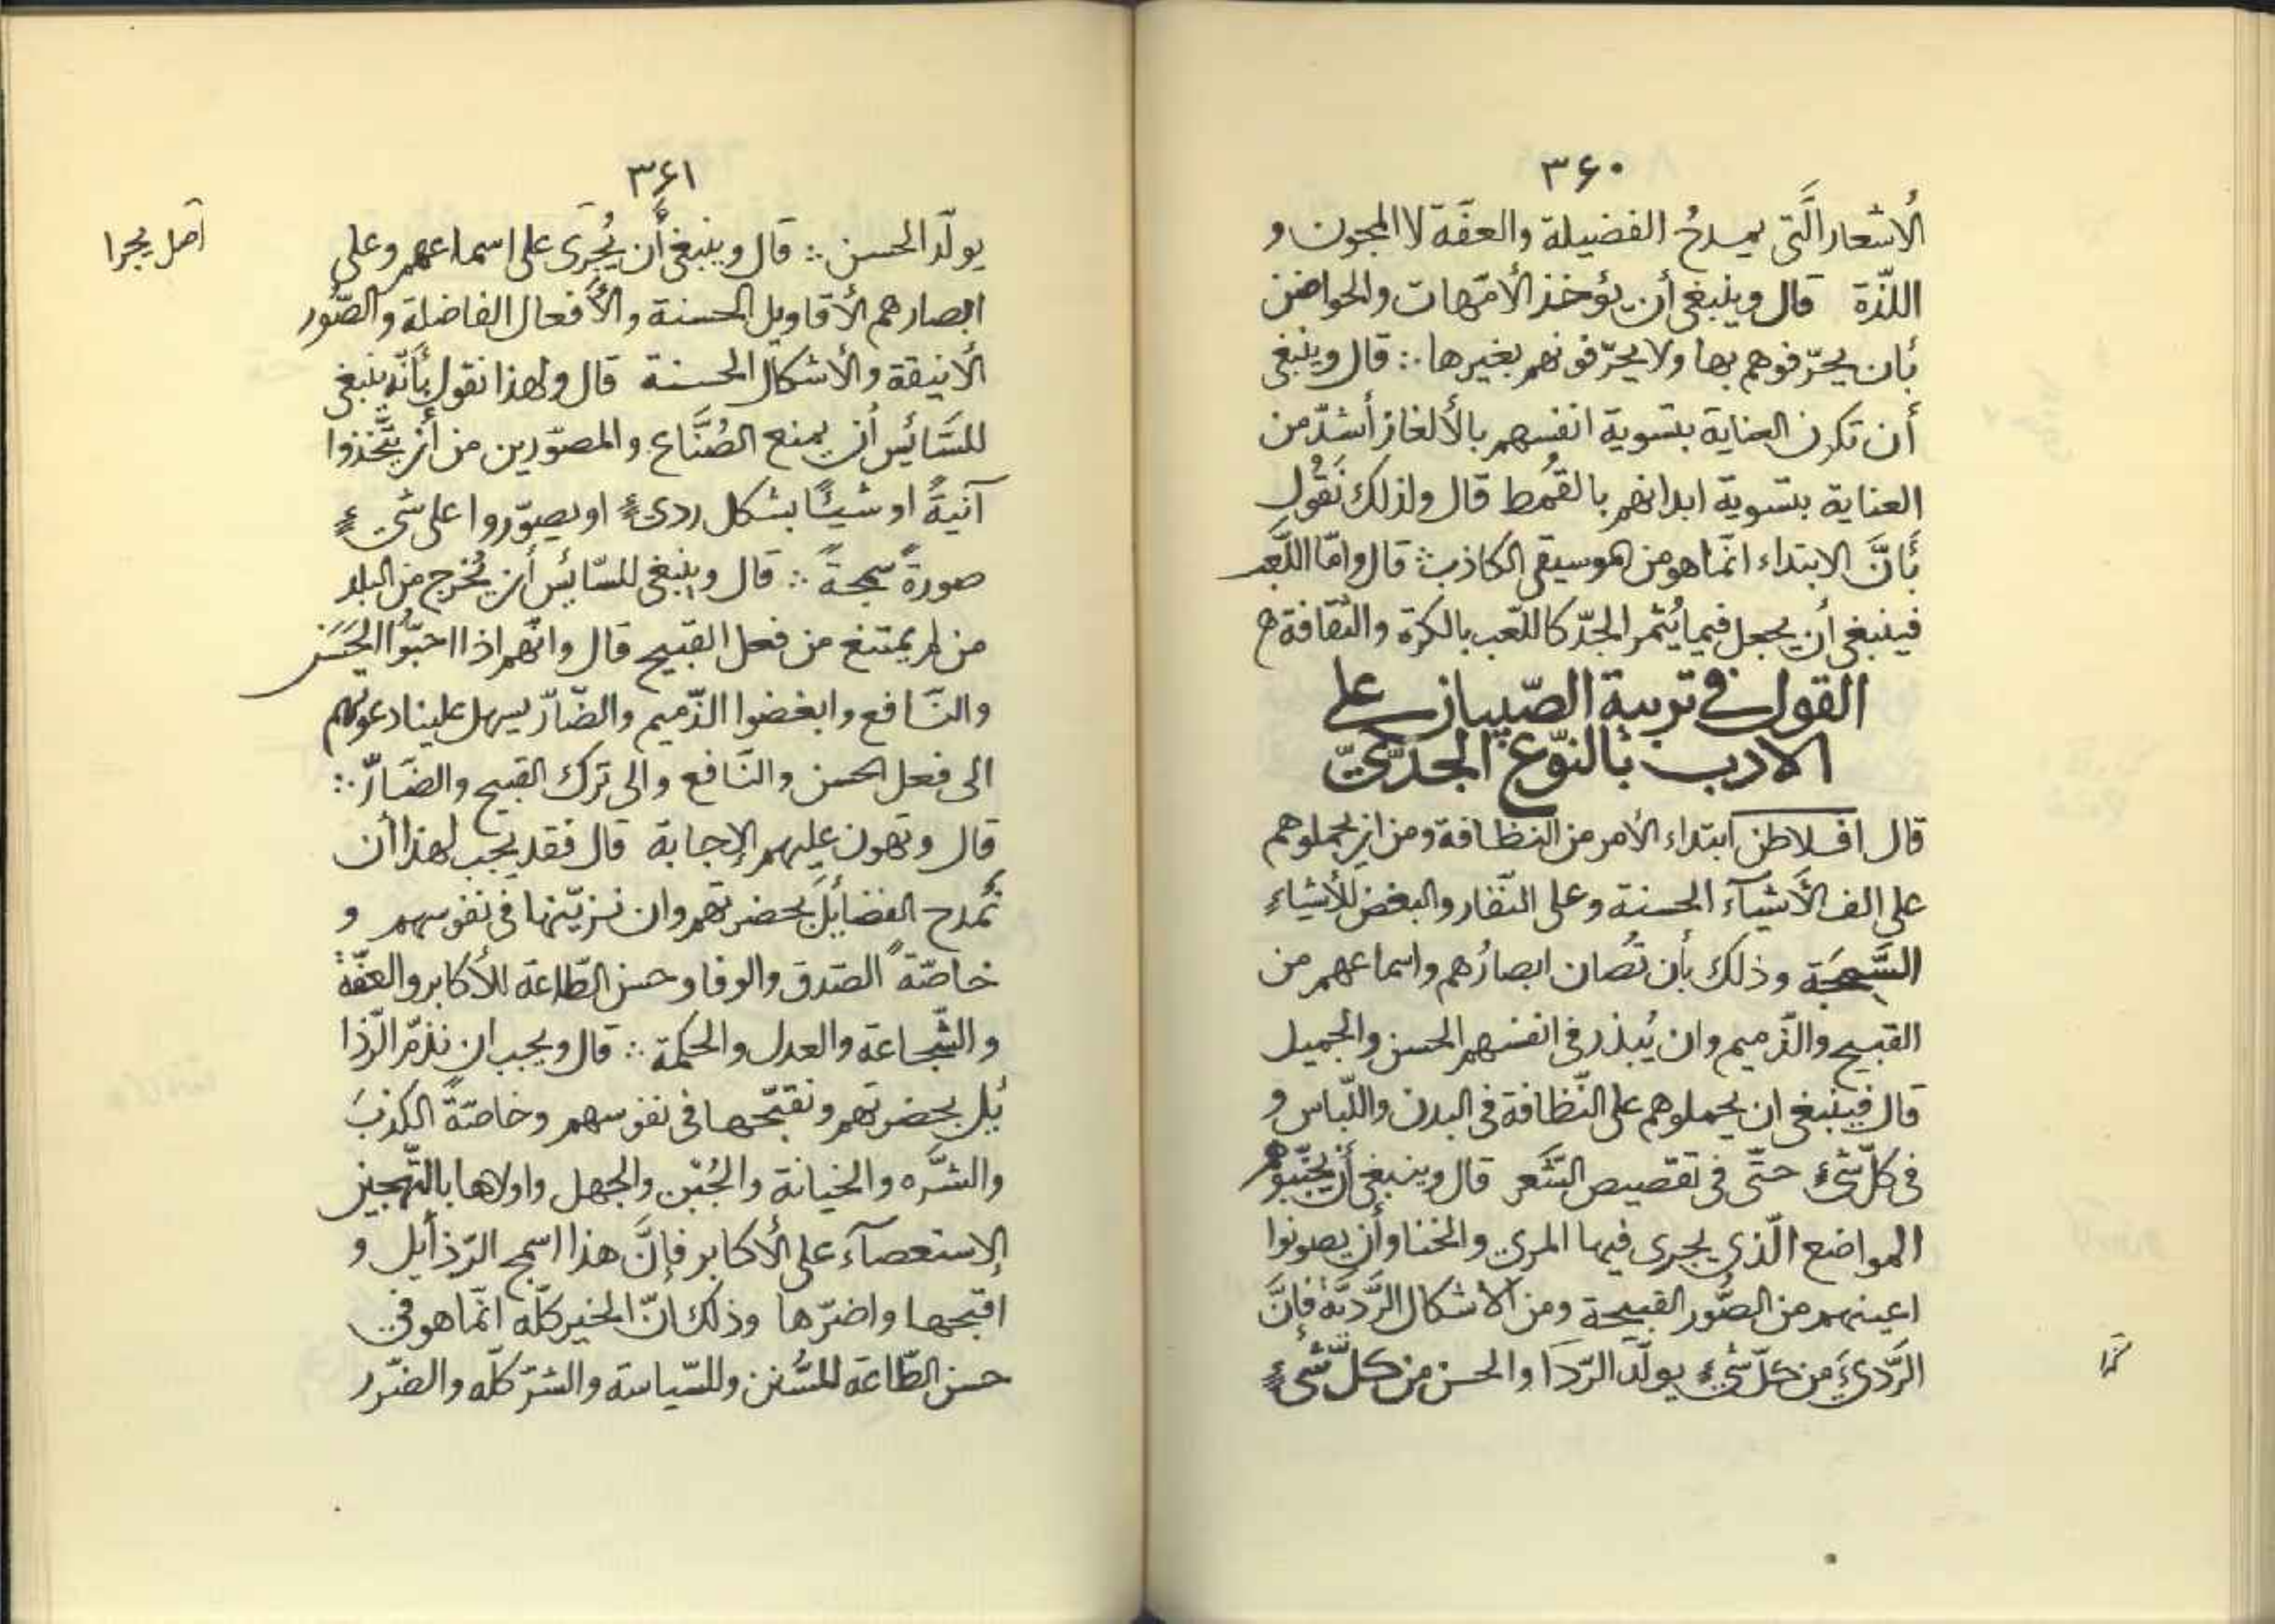 ۳۶۰
الأشعار الَّتى يمدحُ الفضيلة والعفّة لا المجون و
اللّذة قال وينبغى أن يؤخذ الأمّهات والحواضن
بأن يحرّفوهم بها ولا يحرّفونهم بغيرها ∴ قال وينبغى
أن تكون العناية بتسوية انفسهم بالألغاز أشدّ من
العناية بتسوية ابدانهم بالقُمط قال ولذلك نَقُول
بأنَّ الابتداء انّما هو من الموسيقى الكاذب ∴ قال وامّا اللَّعب
فينبغى أن يجعل فيما يُثمر الجدّ كاللّعب بالكرة والثقافة ه
القول فى تربية الصّبيان على
الادب بالنّوع الجدّىّ
قال افلاطن ابتداء الأمر من النظافة ومن ان يحملوهم
على الف الأشيآء الحسنة وعلى النّفار والبغض للأشياءِ
السَّمِجَة وذلك بأن تُصان ابصارُهم واسماعهم من
القبيح والذّميم وان يُبذر فى انفسهم الحسن والجميل
قال فينبغى ان يحملوهم على النّظافة فى البدن واللّباس و
فى كلّ شىءٍ حتّى فى تقصيص الشَّعر قال وينبغى أن يجنّبوهم
المواضع الّذى يجرى فيها المرى والخنا وأن يصونوا
اعينهم من الصُّور القبيحة ومن الاشكال الرَّديّة فإنَّ
الرَّدىَ من كلّ شىءٍ يولّد الرّدَا والحسن من كلّ شىءٍ
۳۶۱
يولّد الحسن ∴ قال وينبغى أن يُجرَى على اسماعهم وعلى
اصل يجرا
ابصارهم الأقاويل الحسنة والأفعال الفاضلة والصّور
الأنيقة والأشكال الحسنة قال ولهذا نقول بأنّه ينبغى
للسَّائيس أن يمنع الصُنَّاع والمصوّرين من أن يتَّخذوا
آنيةً او شيئًا بشكل ردىءٍ او يصوّروا على شىءٍ
صورةً سمجةً ∴ قال وينبغى للسّائيس أن يُخرج من البلد
من لم يمتنع من فعل القبيح قال وانّهم اذا احبّوا الحَسَن
والنَّافع وابغضوا الذّميم والضّارّ يسهل علينا دعوتهم
الى فعل الحسن والنّافع والى ترك القبيح والضَارّ ∴
قال وتهون عليهم الإجابة قال فقد يجب لهذا أن
نُمدح الفضايل بحضرتهم وان نزيّنها فى نفوسهم و
خاصّةً الصّدق والوفا وحسن الطّاعة للأكابر والعفّة
والشّجاعة والعدل والحكمة ∴ قال ويجب ان نذمّ الرّذا
يُل بحضرتهم ونقبّحها فى نفوسهم وخاصّةً الكذبَ
والشَّره والخيانة والجُبْن والجهل واولاها بالتّهجين
الإستعصآء على الأكابر فإنَّ هذا اسمج الرّذأيل و
اقبحها واضرّها وذلك انّ الخير كلّه انّما هو فى
حسن الطّاعة للسُّنن وللسّياسة والشرّ كلّه والضّرر